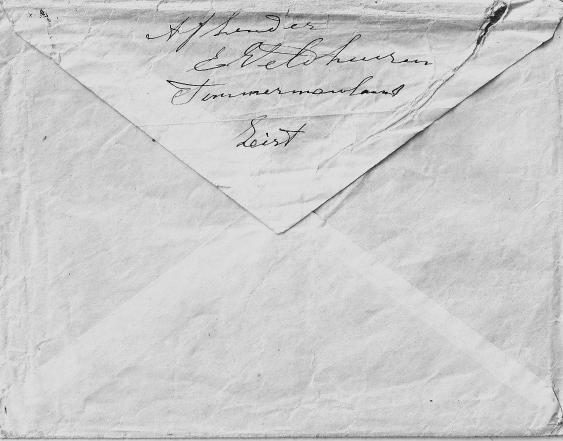 Afzender
E Veldhuizen
Timmermanlaan
Zeist